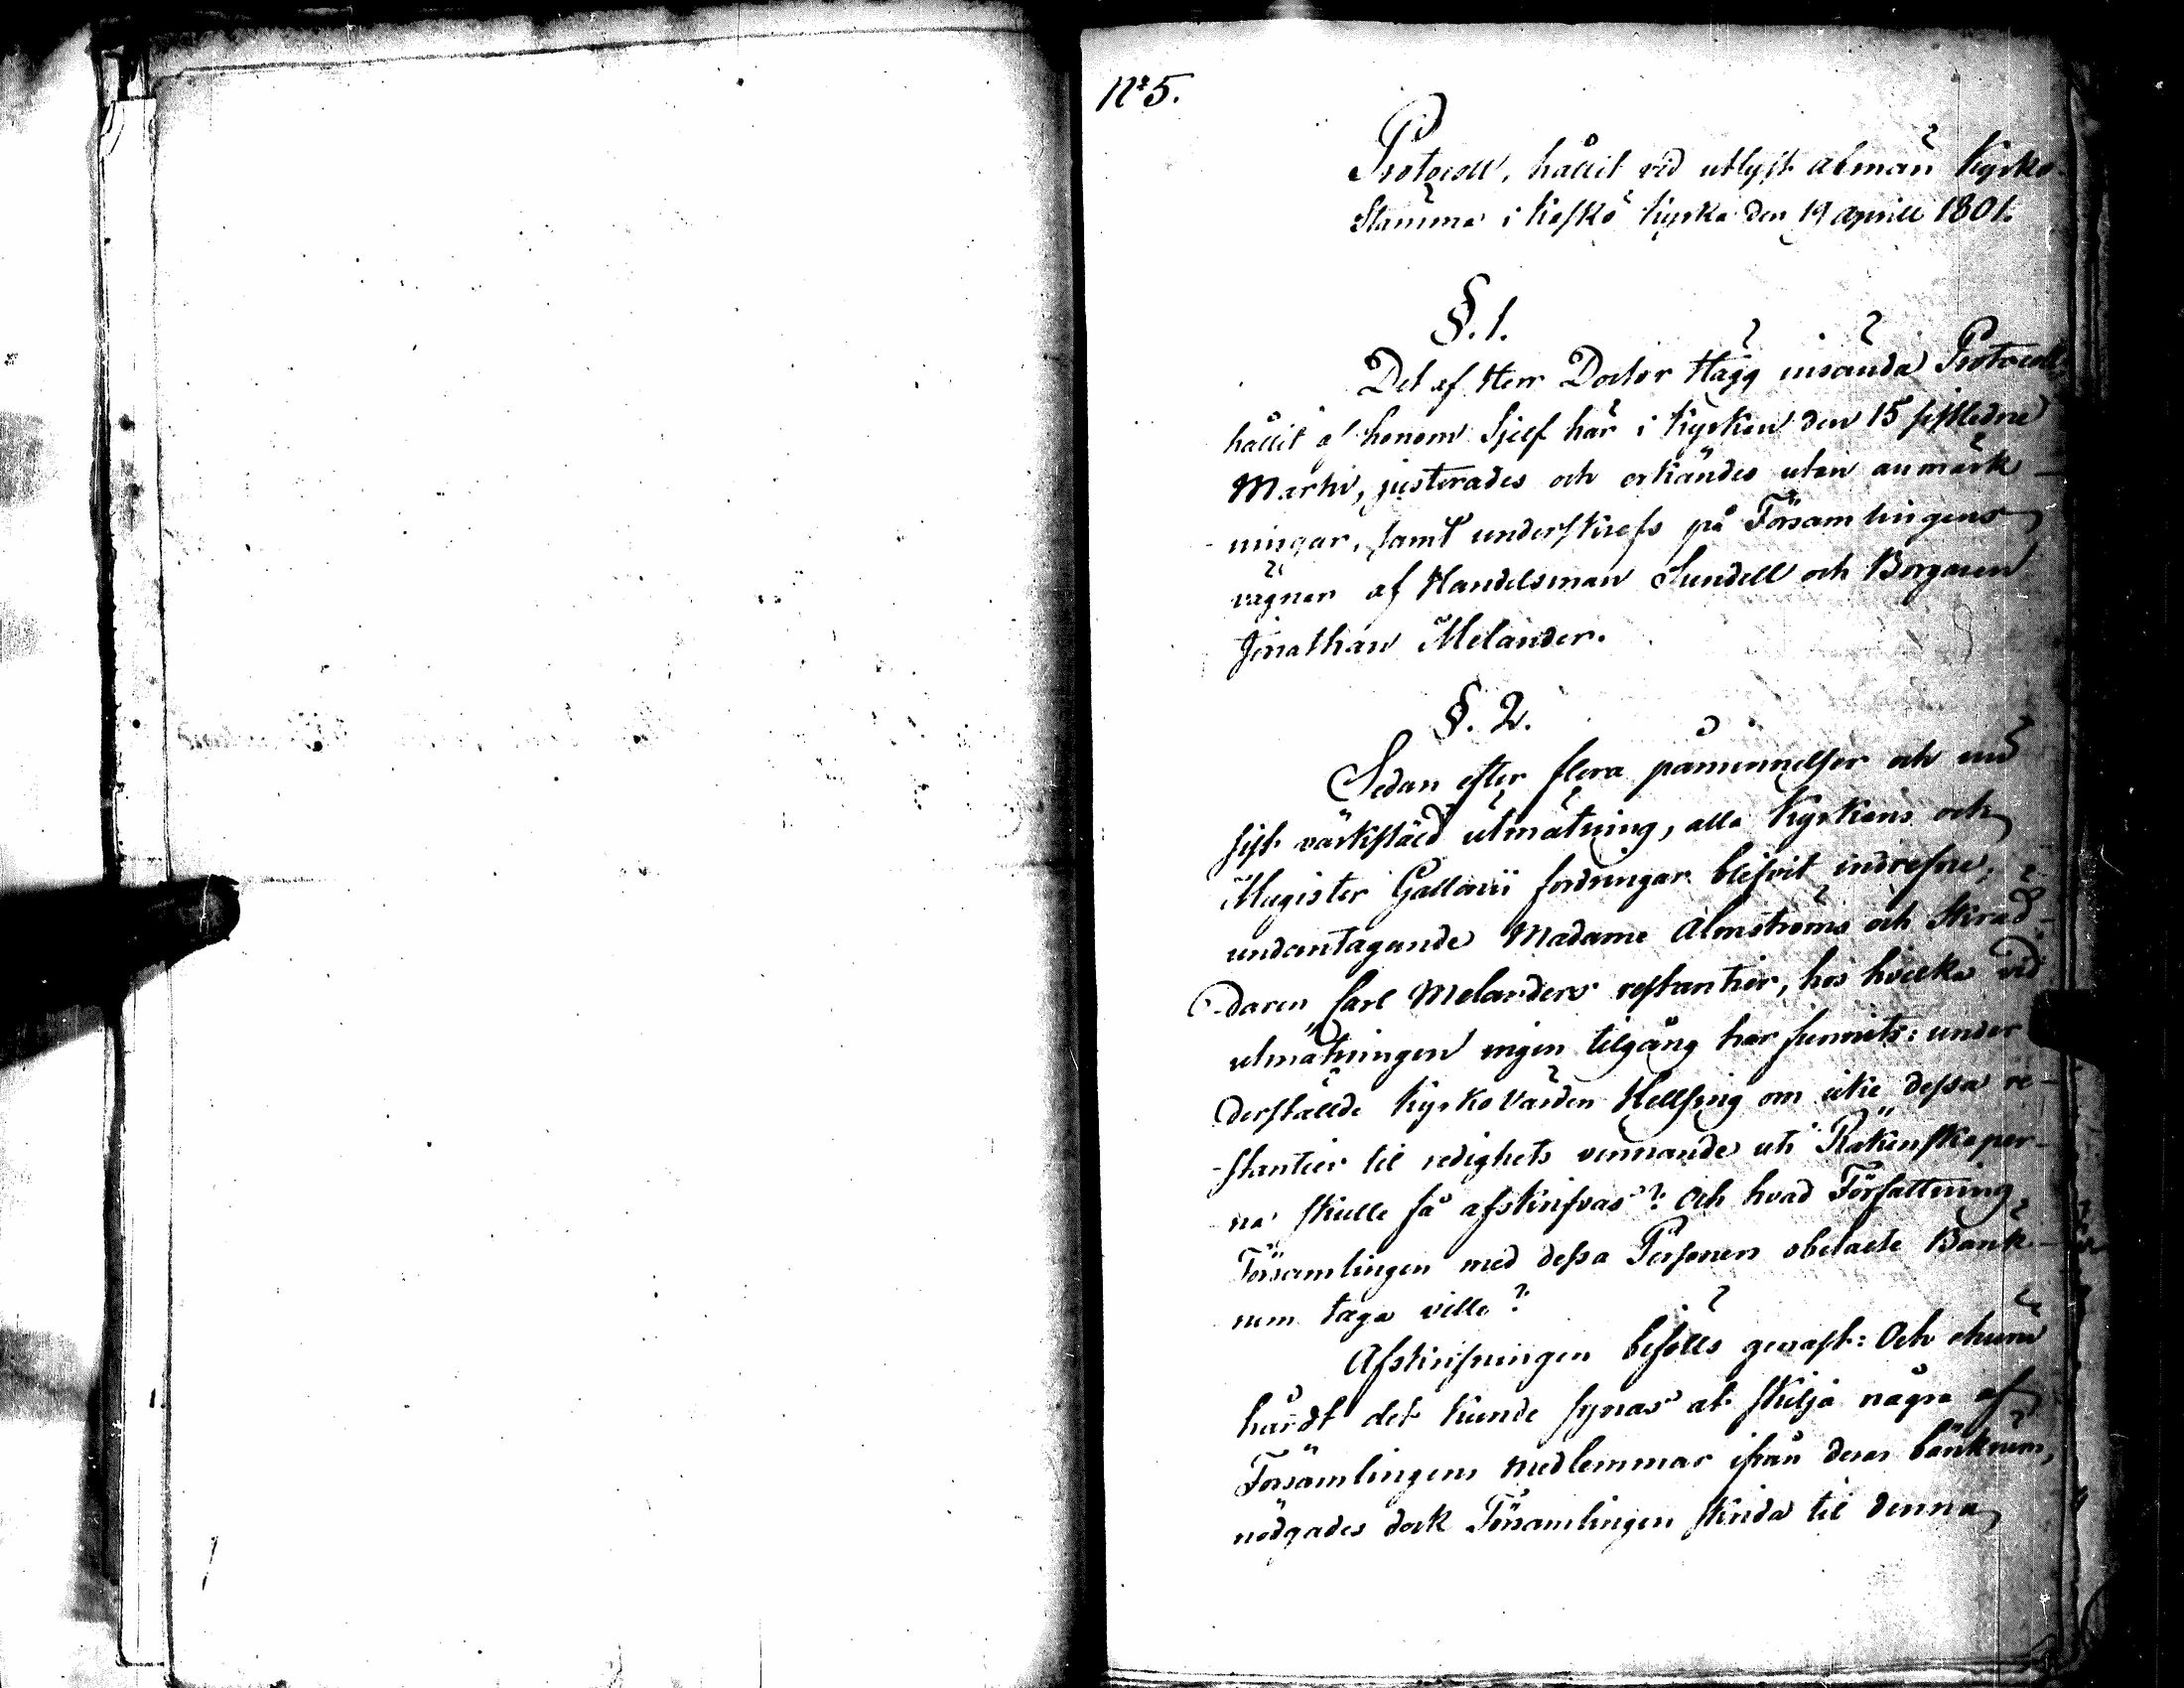 No 5.
Protocoll, hållit vid utlyst alman Kyrko-
Stämma i Kaskö Kyrka den 19 Aprill 1801.
§. 1.
Det af Herr Doctor Hägg insända Protocoll,
hållit af honom Sjelf här i Kyrkan den 15 sistledne
Martii, justerades och erkändes utan anmärk-
-ningar, samt underskrefs på Församlingens
vägnar af Handelsman Sundell och Borgaren
Jonathan Melander.
§. 2.
Sedan efter flera påminnelser och nu
sist värkstäld utmätning, alla Kyrkans och
Magister Gallarii fordringar blifvit indrefne,
undantagande Madame Almströms och Skräd-
-daren Carl Melanders restantier, hos hvilka vid
utmätningen ingen tilgång har funnits: under
derstälde KyrkoVärden Hellsing om icke dessa re-
-stantier til redighets vinnande uti Räkenskaper-
na skulle få afskrifvas? Och hvad Författning
Församlingen med dessa Personers obetalte Bänk-
rum taga ville?
Afskrifningen bifölls genast: Och ehuru
hårdt det kunde synas at skilja några af
Församlingens medlemmar ifrån deras bänkrum,
nödgades dock Församlingen skrida til denna